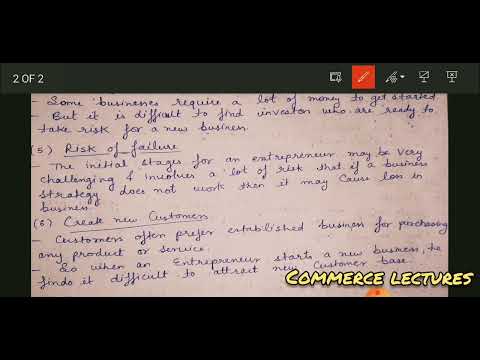 2 OF 2
- Some businesses require a lot of money to get started
- But it is difficult to find investors who are ready to
take risk for a new business.
(5) Risk of failure
- The initial stages for an entrepreneur may be very
challenging & involves a lot of risk that if a business
strategy does not work then it may cause loss in
business
(6) Create new Customers
- Customers often prefer established business for purchasing
any product or service.
- So when an Entrepreneur starts a new business, he
finds it difficult to attract new customer base.
COMMERCE LECTURES